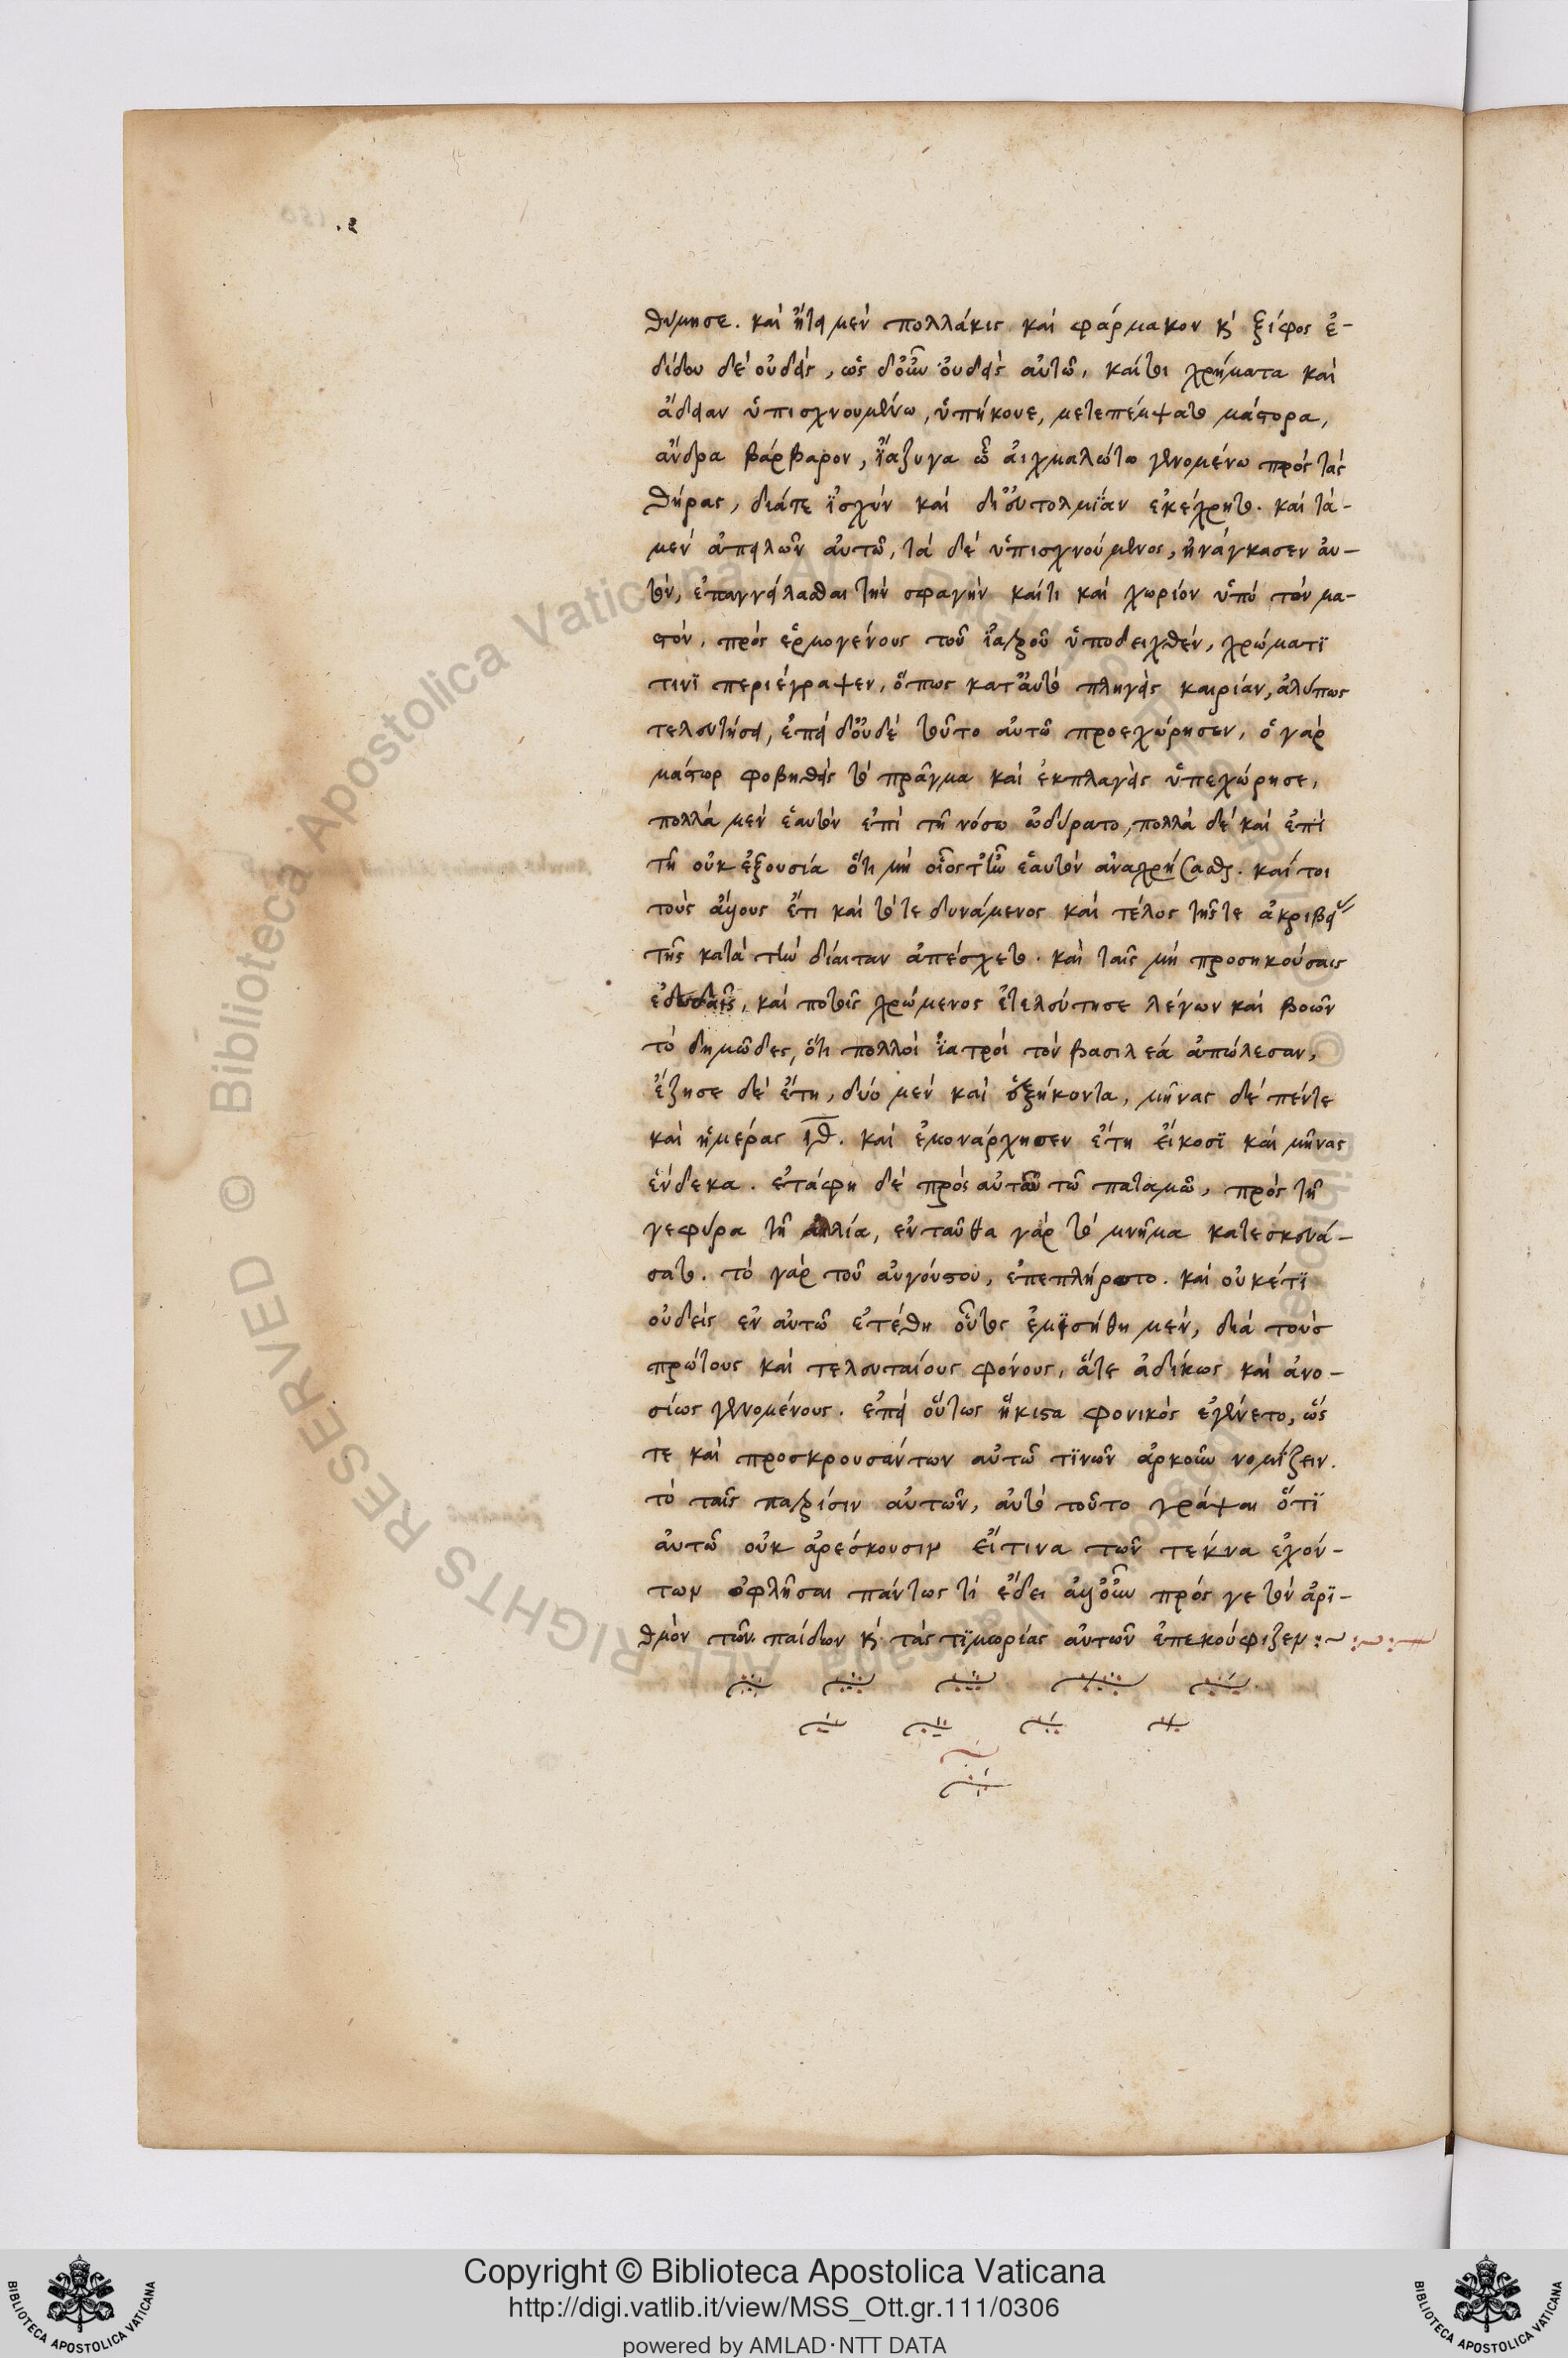 θύμησε. καὶ ἤτει μὲν πολλάκις καὶ φάρμακον κ ξίφος ἐ-
δίδου δὲ οὐδεὶς, ὡς δοὖν οὐδεὶς αὐτῶ, καίτοι χρήματα καὶ
ἄδειαν ὑπισχνουμένω, ὑπήκουε, μετεπέμψατο μάστορα,
ἄνδρα βάρβαρον, ἰάζυγα ὧ αἰχμαλώτω γενομένω πρὸς τὰς
θήρας, διάτε ἰσχὺν καὶ δι εὐτολμίαν ἐκέχρητο. καὶ τὰ-
μὲν ἀπειλῶν αὐτῶ, τὰ δὲ ὑπισχνούμενος, ἠνάγκασεν αὐ-
τὸν, ἐπαγγείλασθαι τὴν σφαγὴν καίτι καὶ χωρίον ὑπὸ τὸν μα-
στὸν, πρὸς ἑρμογένους τοῦ ἰατροῦ ὑποδειχθὲν, χρώματϊ
τινὶ περιέγραψεν, ὅπως κατ αὐτὸ πληγεὶς καιρίαν, ἀλύπως
τελευτήσει, ἐπεὶ δ οὐδὲ τοῦτο αὐτῶ προεχώρησεν, ὁ γὰρ
μάστωρ φοβηθεὶς τὸ πρᾶγμα καὶ ἐκπλαγεὶς ὑπεχώρησε,
πολλὰ μὲν ἑαυτὸν ἐπὶ τῆ νόσω ὠδύρατο, πολλὰ δὲ καὶ ἐπὶ
τῆ οὐκ ἐξουσία ὅτι μὴ οἷος τ ἦν ἑαυτὸν ἀναχρήσασθαι. καί τοι
τοὺς ἄλλους ἔτι καὶ τότε δυνάμενος καὶ τέλος τῆς τε ἀκριβεί
τῆς κατὰ τὴν δίαιταν ἀπέσχετο. καὶ ταῖς μὴ προσηκούσαις
ἐδωδαῖς, καὶ ποτοῖς χρώμενος ἐτελεύτησε λέγων καὶ βοῶν
τὸ δημῶδες, ὅτι πολλοὶ ἰατροὶ τὸν βασιλέα ἀπώλεσαν,
ἔζησε δὲ ἔτη, δύο μὲν καὶ ἑξήκοντα, μῆνας δὲ πέντε
καὶ ἡμέρας ιθ. καὶ ἐμονάρχησεν ἔτη εἴκοσϊ καὶ μῆνας
ἕνδεκα. ἐτάφη δὲ πρὸς αὐτῶ τῶ παταμῶ, πρὸς τῆ
γεφύρα τῆ αλλία, ἐνταῦθα γὰρ τὸ μνῆμα κατεσκευά-
σατο. τὸ γὰρ τοῦ αὐγούστου, ἐπεπλήρωτο. καὶ οὐκέτϊ
οὐδεὶς ἐν αὐτῶ ἐτέθη οὗτος ἐμισήθη μὲν, διὰ τοὺσ
πρώτους καὶ τελευταίους φόνους, ἅτε ἀδίκως καὶ ἀνο-
σίως γενομένους. ἐπεὶ οὕτως ἥκιστα φονικὸς ἐγένετο, ὥς
τε καὶ προσκρουσάντων αὐτῶ τϊνῶν ἀρκοῦν νομίζειν.
τὸ ταῖς πατρίσιν αὐτῶν, αὐτὸ τοῦτο γράψαι ὅτϊ
αὐτῶ οὐκ ἀρέσκουσιν εἴτινα τῶν τέκνα ἐχόν-
των ὀφλῆσαι πάντως τὶ ἔδει ἀλλοὖν πρός γε τὸν ἀρϊ-
θμὸν τῶν παίδων κ τὰς τϊμωρίας αὐτῶν ἐπεκούφιζεν :~
Copyright © Biblioteca Apostolica Vaticana
http://digi.vatlib.it/view/MSS_Ott.gr.111/0306
powered by AMLAD·NTT DATA